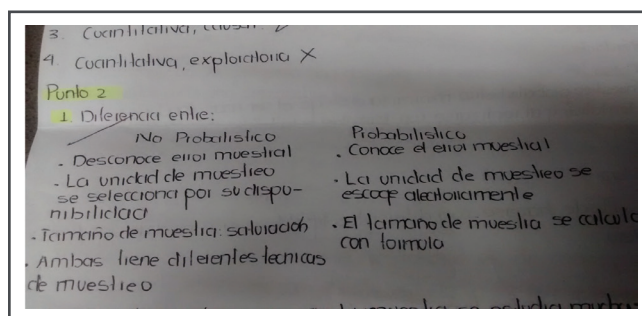 3. Cuantitativa, causal
4. Cuantitativa, exploratoria X
Punto 2
1. Diferencia entre:
No Probalistico
. Desconoce error muestral
. La unidad de muestreo
se selecciona por su dispo-
nibilidad
. Tamaño de muestra: saturación
. Ambas tiene diferentes tecnicas
de muestreo
Probabilistico
. Conoce el error muestral
. La unidad de muestreo se
escoge aleatoriamente
. El tamaño de muestra se calcula
con formula
se estudia muchas